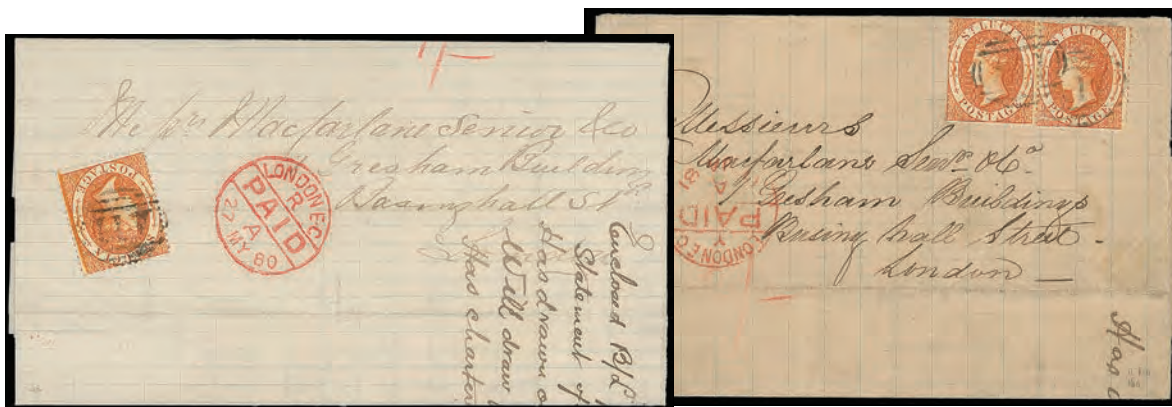 1/-
Macfarlane Senior & Co
Gresham Building
Basinghall St
POSTAGE
LONDON.E.C.
R
PAID
A
27 MY 80
Enclosed B/L
Statement of
Has drawn o
Will draw
Has charter
ST LUCIA
POSTAGE
ST LUCIA
POSTAGE
Messieurs
Macfarlans Senr. & Co.
Gresham Buildings
Busing hall Street.
London
LONDON E.C.
Y
PAID
81
Has c